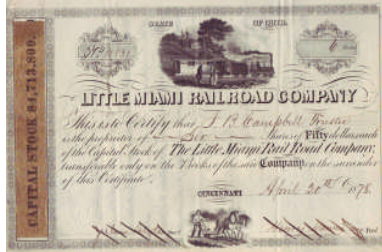 STATE OF OHIO.
6
LITTLE MIAMI RAILROAD COMPANY
This is to Certify that J. R. Campbell Trustee
is the proprietor of Six Shares of Fifty dollars each
of the Capital Stock of The Little Miami Rail Road Company,
transferable only on the Books of the said Company on the surrender
of this Certificate.
CINCINNATI April 20th 1878
CAPITAL STOCK $4,713,800.